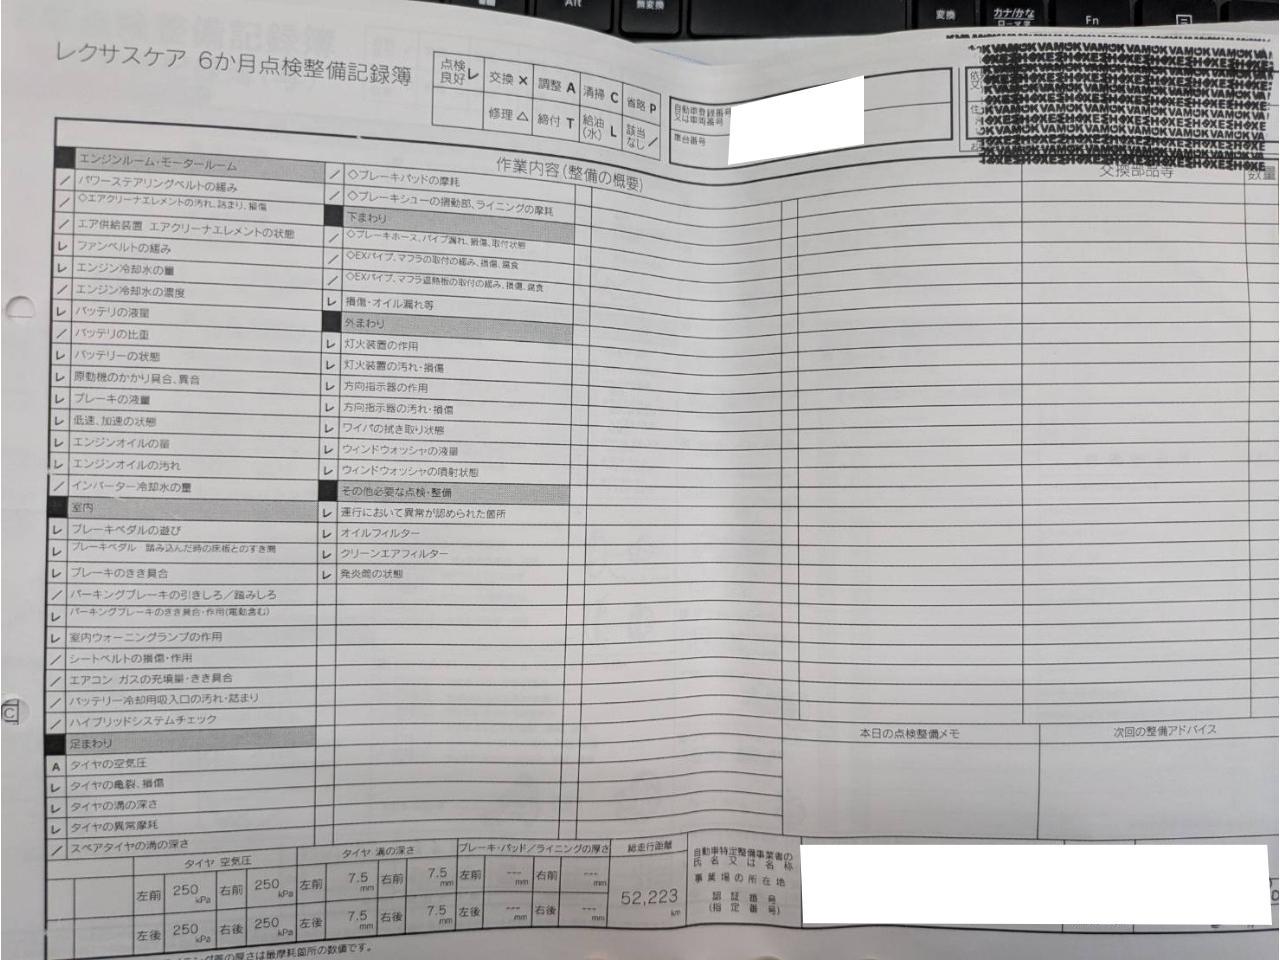 変換
カナ/かな
ローマ字
Fn
Alt
無変換
レクサスケア 6か月点検整備記録簿
点検良好 レ 交換 × 調整 A 清掃 C 省略 P
修理 △ 締付 T 給油(水) L 該当なし /
自動車登録番号
又は車両番号
車台番号
作業内容(整備の概要)
交換部品等
数量
エンジンルーム・モータールーム
/ パワーステアリングベルトの緩み
/ ◇エアクリーナエレメントの汚れ、詰まり、損傷
/ エア供給装置 エアクリーナエレメントの状態
レ ファンベルトの緩み
レ エンジン冷却水の量
/ エンジン冷却水の濃度
レ バッテリの液量
/ バッテリの比重
レ バッテリーの状態
レ 原動機のかかり具合、異音
レ ブレーキの液量
レ 低速、加速の状態
レ エンジンオイルの量
レ エンジンオイルの汚れ
/ インバーター冷却水の量
室内
レ ブレーキペダルの遊び
レ ブレーキペダル 踏み込んだ時の床板とのすき間
レ ブレーキのきき具合
/ パーキングブレーキの引きしろ/踏みしろ
レ パーキングブレーキのきき具合・作用(電動含む)
レ 室内ウォーニングランプの作用
/ シートベルトの損傷・作用
/ エアコン ガスの充填量・きき具合
/ バッテリー冷却用吸入口の汚れ・詰まり
/ ハイブリッドシステムチェック
足まわり
A タイヤの空気圧
レ タイヤの亀裂、損傷
レ タイヤの溝の深さ
レ タイヤの異常摩耗
/ スペアタイヤの溝の深さ
/ ◇ブレーキパッドの摩耗
/ ◇ブレーキシューの摺動部、ライニングの摩耗
下まわり
/ ◇ブレーキホース、パイプ漏れ、損傷、取付状態
/ ◇EXパイプ、マフラの取付の緩み、損傷、腐食
/ ◇EXパイプ、マフラ遮熱板の取付の緩み、損傷、腐食
レ 損傷・オイル漏れ等
外まわり
レ 灯火装置の作用
レ 灯火装置の汚れ・損傷
レ 方向指示器の作用
レ 方向指示器の汚れ・損傷
レ ワイパの拭き取り状態
レ ウィンドウォッシャの液量
レ ウィンドウォッシャの噴射状態
その他必要な点検・整備
レ 運行において異常が認められた個所
レ オイルフィルター
レ クリーンエアフィルター
レ 発炎筒の状態
本日の点検整備メモ
次回の整備アドバイス
タイヤ 空気圧
左前 250 kPa 右前 250 kPa
左後 250 kPa 右後 250 kPa
タイヤ 溝の深さ
左前 7.5 mm 右前 7.5 mm
左後 7.5 mm 右後 7.5 mm
ブレーキ・パッド/ライニングの厚さ
左前 --- mm 右前 --- mm
左後 --- mm 右後 --- mm
総走行距離
52,223 km
自動車特定整備事業者の
氏名又は名称
事業場の所在地
認証番号
(指定番号)
厚さは最摩耗箇所の数値です。